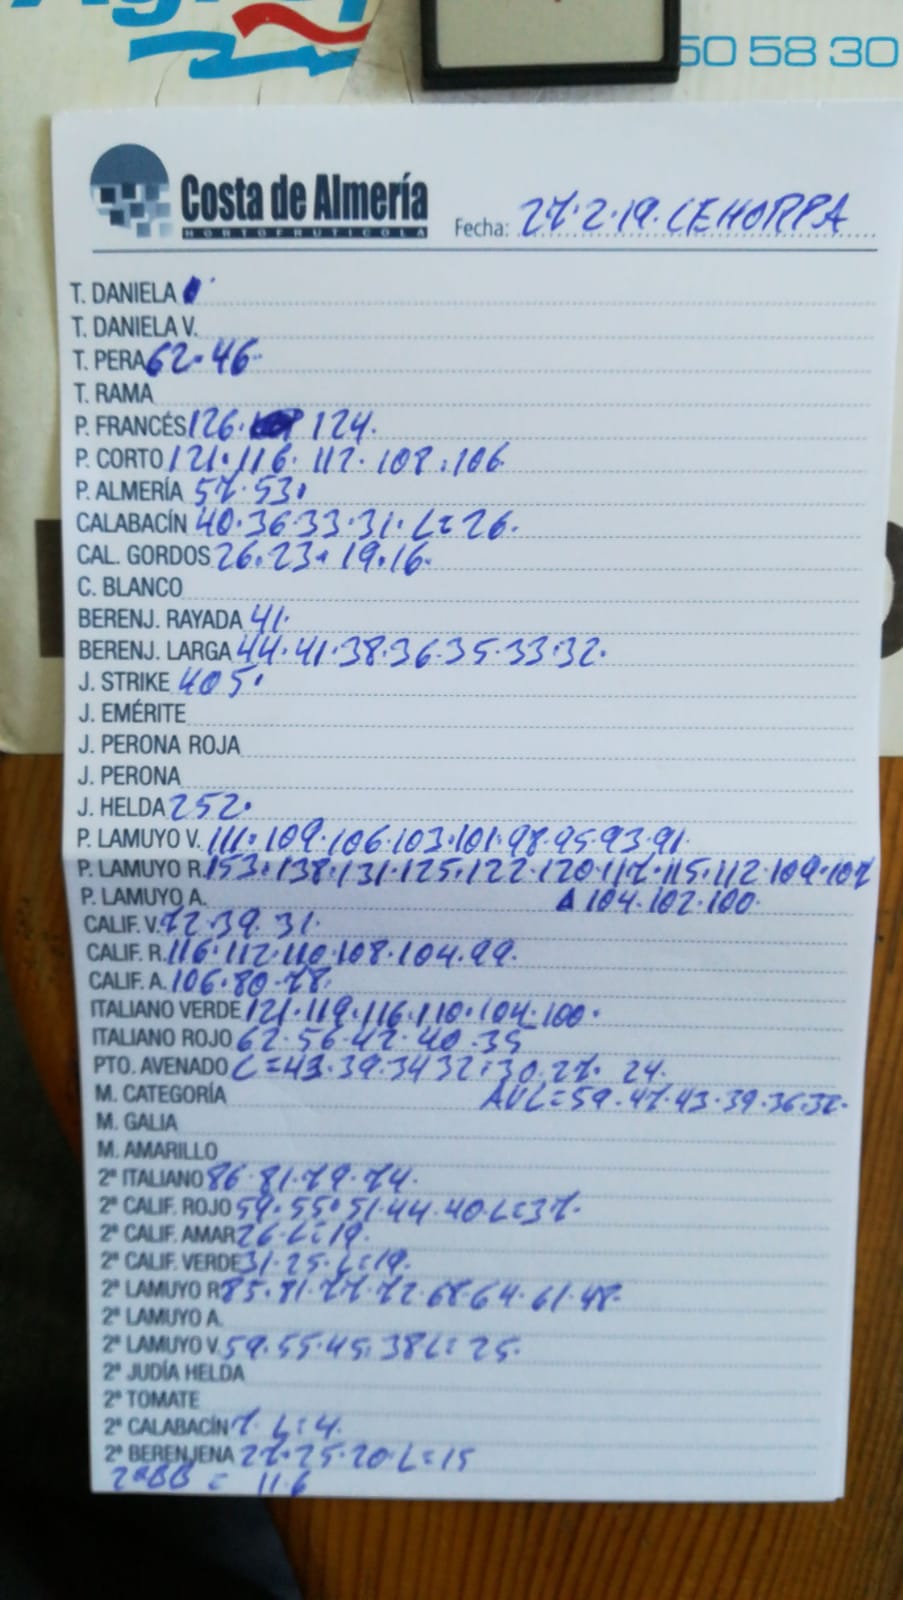 50 58 30
Costa de Almería
HORTOFRUTICOLA
Fecha: 27.2.19. CEHORPA
T. DANIELA
T. DANIELA V.
T. PERA 62. 46.
T. RAMA
P. FRANCÉS 126. 124.
P. CORTO 121. 116. 112. 108. 106
P. ALMERÍA 57. 53.
CALABACÍN 40. 36. 33. 31. L= 26.
CAL. GORDOS 26. 23. 19. 16.
C. BLANCO
BERENJ. RAYADA 41.
BERENJ. LARGA 44. 41. 38. 36. 35. 33. 32.
J. STRIKE 405.
J. EMÉRITE
J. PERONA ROJA
J. PERONA
J. HELDA 252.
P. LAMUYO V. 111. 109. 106. 103. 101. 98. 95. 93. 91.
P. LAMUYO R. 153. 138. 131. 125. 122. 120. 117. 115. 112. 109. 107
P. LAMUYO A. 104. 102. 100.
CALIF. V. 72. 39. 31.
CALIF. R. 116. 112. 110. 108. 104. 99.
CALIF. A. 106. 80. 78.
ITALIANO VERDE 121. 119. 116. 110. 104. 100.
ITALIANO ROJO 62. 56. 47. 40. 35
PTO. AVENADO L=43. 39. 34 32. 30. 27. 24.
M. CATEGORÍA AVL=59. 47. 43. 39. 36. 32.
M. GALIA
M. AMARILLO
2ª ITALIANO 86. 81. 79. 74.
2ª CALIF. ROJO 59. 55. 51. 44. 40. L=37.
2ª CALIF. AMAR 26. L=19.
2ª CALIF. VERDE 31. 25. L=19.
2ª LAMUYO R 85. 81. 77. 72. 68. 64. 61. 48.
2ª LAMUYO A.
2ª LAMUYO V. 59. 55. 45. 38 L= 25.
2ª JUDÍA HELDA
2ª TOMATE
2ª CALABACÍN 7. L=4.
2ª BERENJENA 27. 25. 20. L=15
2ªBB = 11. 6